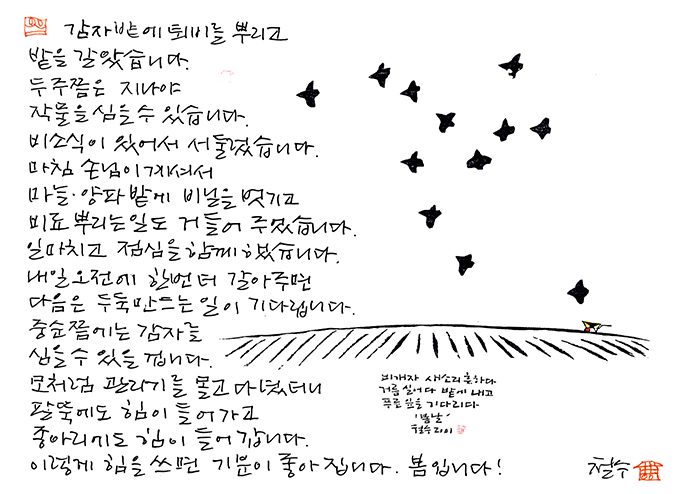 감자밭에 퇴비를 뿌리고
밭을 갈았습니다.
두주쯤은 지나야
작물을 심을 수 있습니다.
비소식이 있어서 서둘렀습니다.
마침 손님이 계셔서
마늘·양파밭에 비닐을 벗기고
비료 뿌리는 일도 거들어 주셨습니다.
일마치고 점심을 함께 했습니다.
내일 오전에 한번 더 갈아주면
다음은 두둑 만드는 일이 기다립니다.
중순쯤에는 감자를
심을 수 있을 겁니다.
모처럼 관리기를 몰고 다녔더니
팔뚝에도 힘이 들어가고
종아리에도 힘이 들어갑니다.
이렇게 힘을 쓰면 기분이 좋아집니다. 봄입니다!
비개자 새소리 흔하다
거름 실어다 밭에 내고
푸른 잎을 기다리다
'봄날'
철수
철수